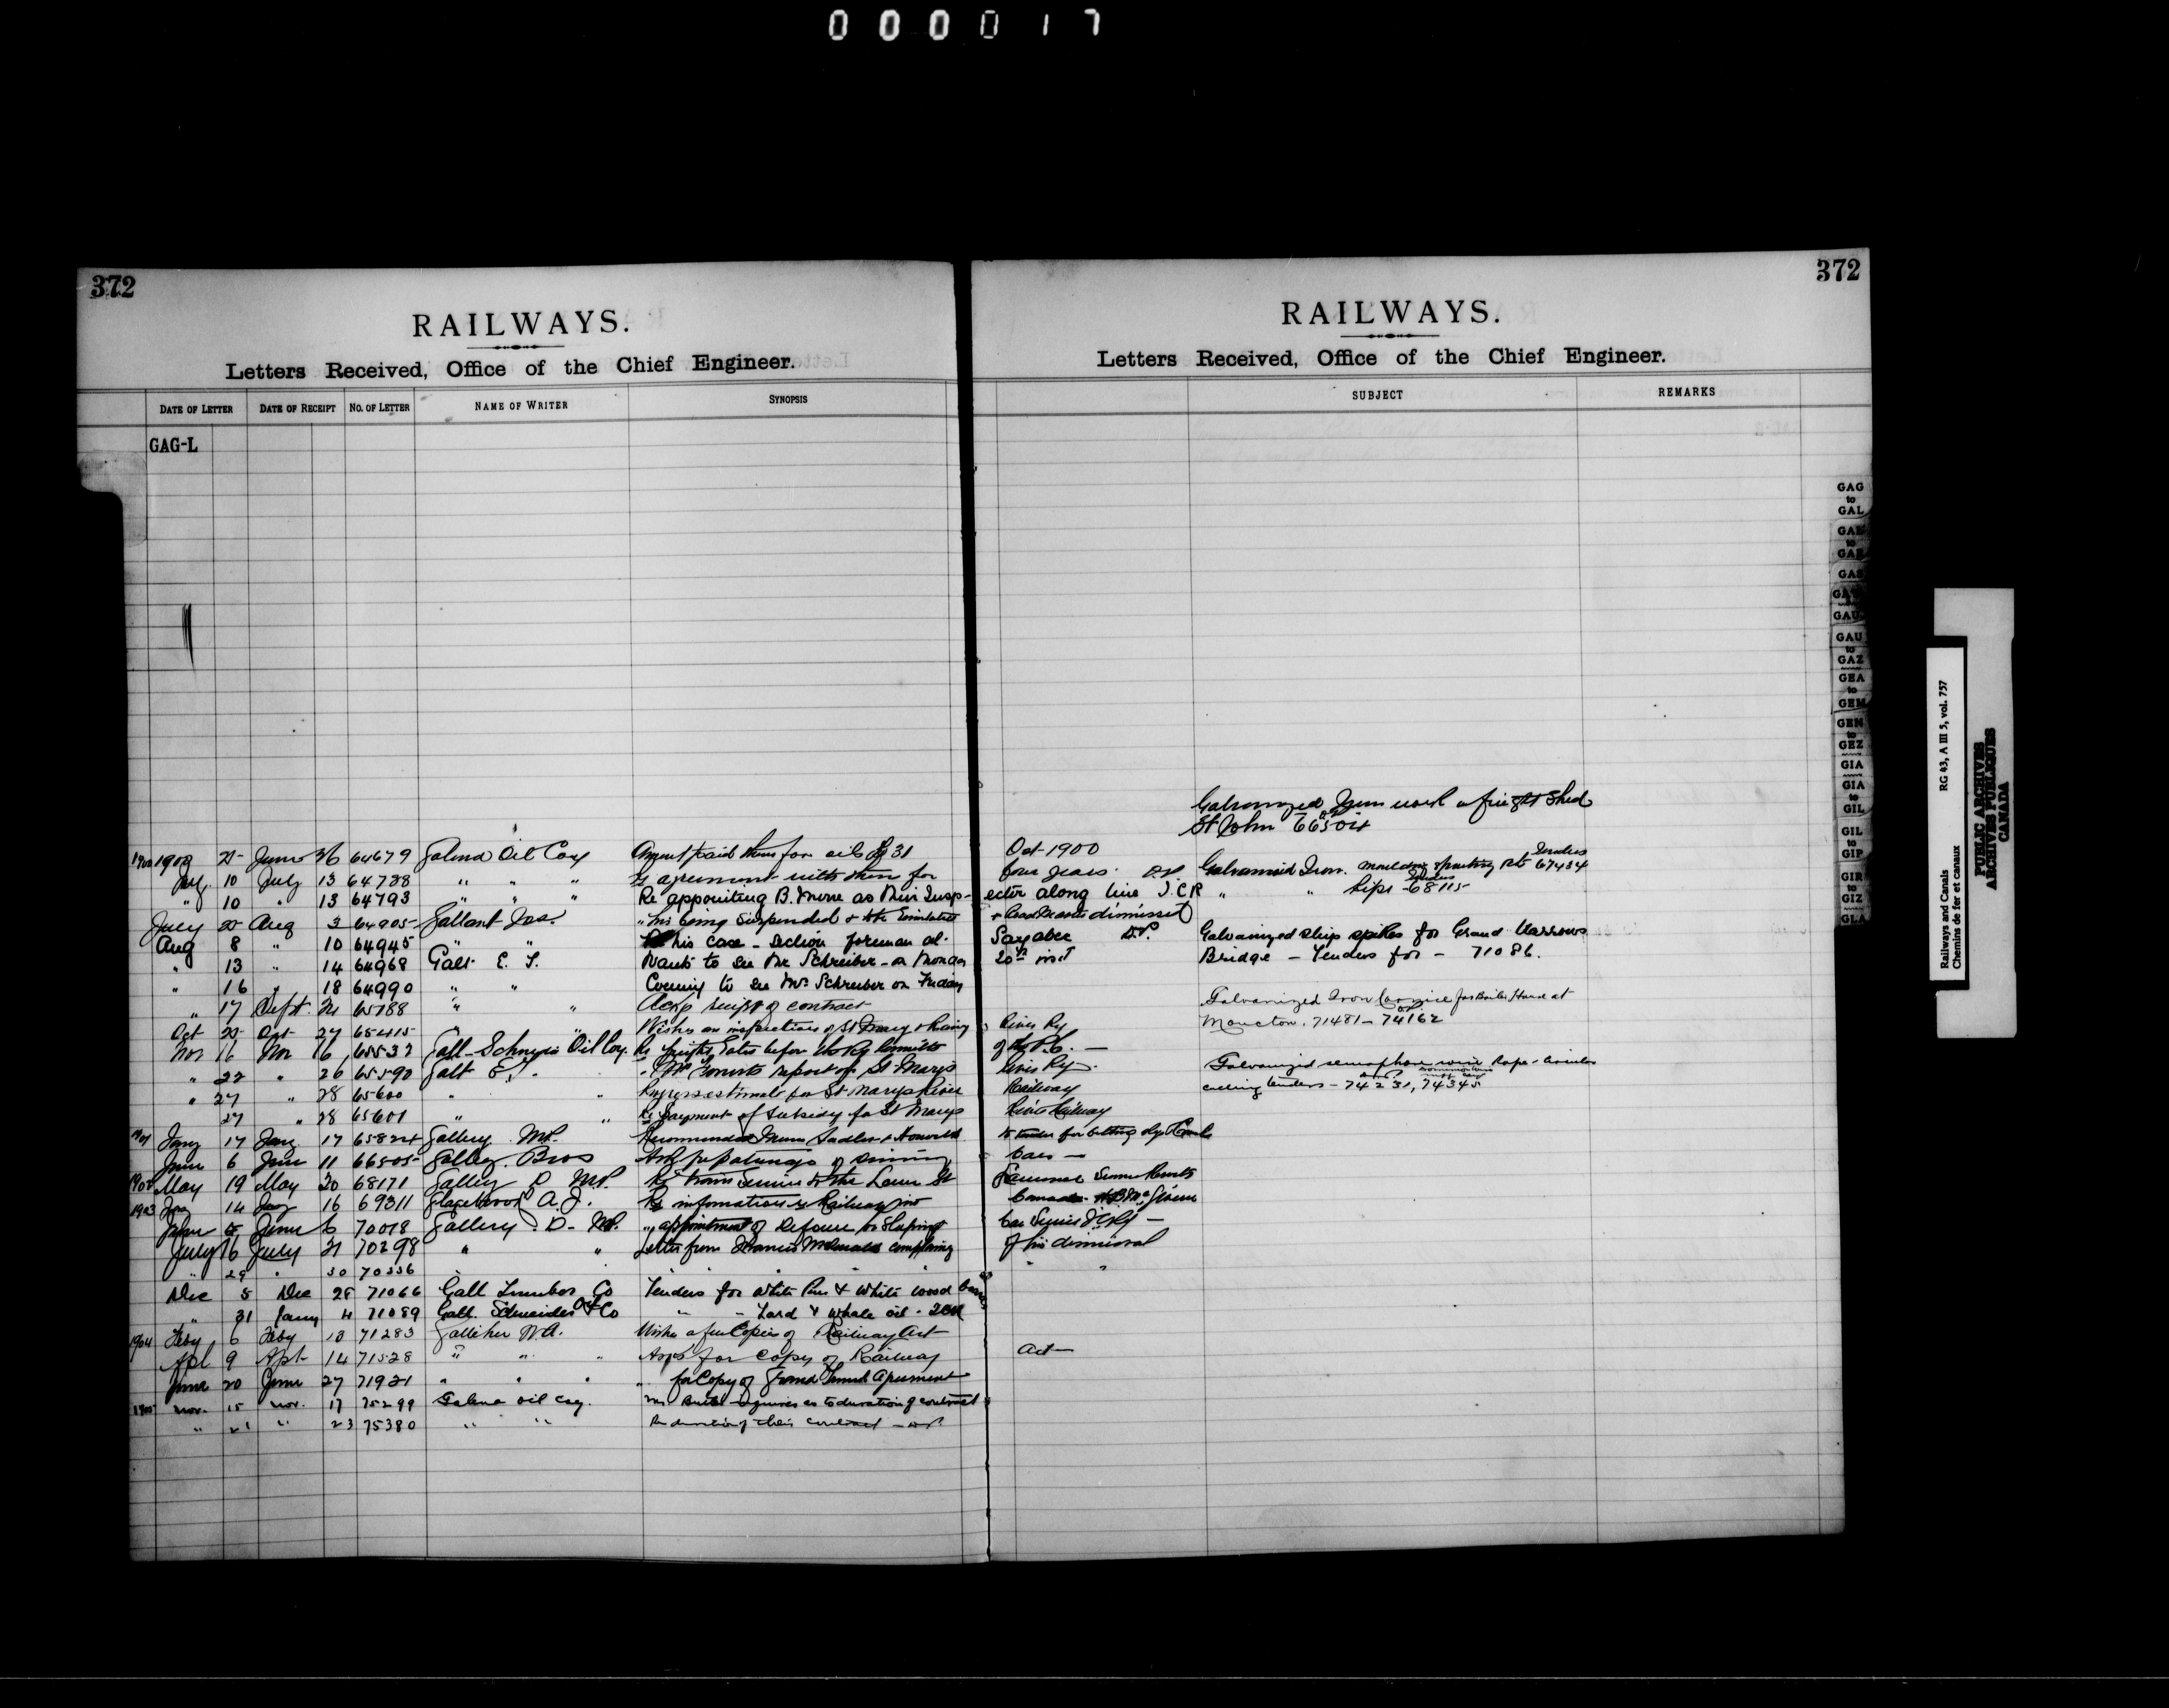 000017
372
RAILWAYS.
Letters Received, Office of the Chief Engineer.
DATE OF LETTER DATE OF RECEIPT NO. OF LETTER NAME OF WRITER SYNOPSIS
GAG-L
25 June 26 64679 Galena Oil Coy Amount paid them for oils 31
July 10 July 13 64738 " " " Re agreement with them for
" 10 " 13 64793 " " " Re appointing B. as their Insp-
July 25 Aug 3 64905 Gallant Jos. " his being suspended &
Aug 8 " 10 64945 " " his case - section foreman at
" 13 " 14 64968 Galt E. T. Wants to see Mr Schreiber on Monday
" 16 " 18 64990 " " Coming to see Mr Schreiber on Friday
" 17 Sept. 21 65188 " " Ackg receipt of contract
Oct 25 Oct 27 65415 " " Wishes an inspection of St Mary
Nov 16 Nov 16 65537 Gall-Schneider Oil Coy. Re freight rates before the Ry Committee
" 22 " 26 65590 Galt E. T. report on St Marys
" 27 " 28 65600 " " Progress estimate for St Marys River
27 " 28 65601 " " Re payment of subsidy for St Marys
1901 Jany 17 Jany 17 65824 Gallery MP. Recommends Sadler & Howarth
June 6 June 11 66505 Gallery Bros Ask for patronage of dining
1902 May 19 May 20 68171 Gallery D MP. Re train service to the Lower St
1903 Jany 14 Jany 16 69311 Glazebrook A. J. Re information re Railways in
June 5 June 6 70018 Gallery D. MP. " appointment of on Sleeping
July 16 July 21 70298 " " Letter from Francis McDonald complaing
" 29 " 30 70336 " "
Dec 5 Dec 28 71066 Gall Lumber Co Tenders for White Pine & White wood
" 31 Jany 4 71089 Gall Schneider Oil Co " - Lard & Whale oil - ICR
1904 Feby 6 Feby 10 71283 Galliher W.A. Wishes a few Copies of Railway Act
Apl 9 Apl 14 71528 " " " Asks for copy of Railway
June 20 June 27 71921 " " " " for Copy of Grand Trunk Agreement
1905 Nov. 15 Nov. 17 75299 Galena Oil Coy. Mr. inquires as to duration of contract
" 21 " 23 75380 " " Re duration of their contract
372
RAILWAYS.
Letters Received, Office of the Chief Engineer.
SUBJECT REMARKS
Galvanized Iron work on freight shed
St John
Oct 1900
four years. Galvanized Iron. Tenders 67434
ector along line I.C.R " " Pipe - Tenders 68115
& dismissed
Sayabec Galvanized ship spikes for Grand Narrows
20th inst Bridge - Tenders for - 71086.
Galvanized Iron Cornice for Boiler House at
Moncton. 71481 - 74162
River Ry
of Ry P.C. -
River Ry. Galvanized semaphore wire Rope - circular
Railway calling tenders - 74231, 74345
River Railway
to tender for belting
Cars -
Summer
Canada
Car Service I C Ry -
of his dismissal
" "
Act -
GAG
to
GAL
GAS
GAU
GAU
to
GAZ
GEA
to
GEM
GEN
to
GEZ
GIA
GIA
to
GIL
GIL
to
GIP
GIR
to
GIZ
GLA
Railways and Canals RG 43, A III 5, vol. 757
Chemins de fer et canaux
PUBLIC ARCHIVES
ARCHIVES PUBLIQUES
CANADA